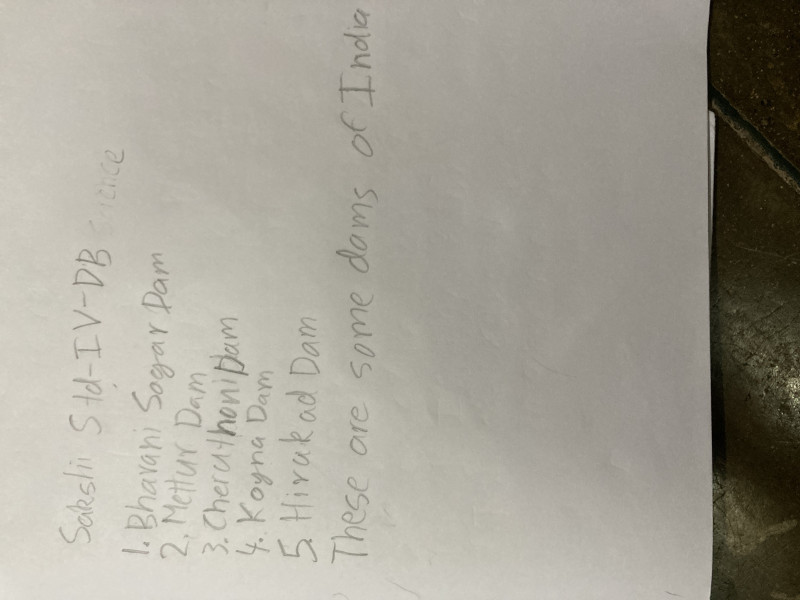 Sakslii Std-IV-DB Science
1. Bhavani Sogar Dam
2. Mettur Dam
3. Cheruthoni Dam
4. Koyna Dam
5. Hirakad Dam
These are some dams of India